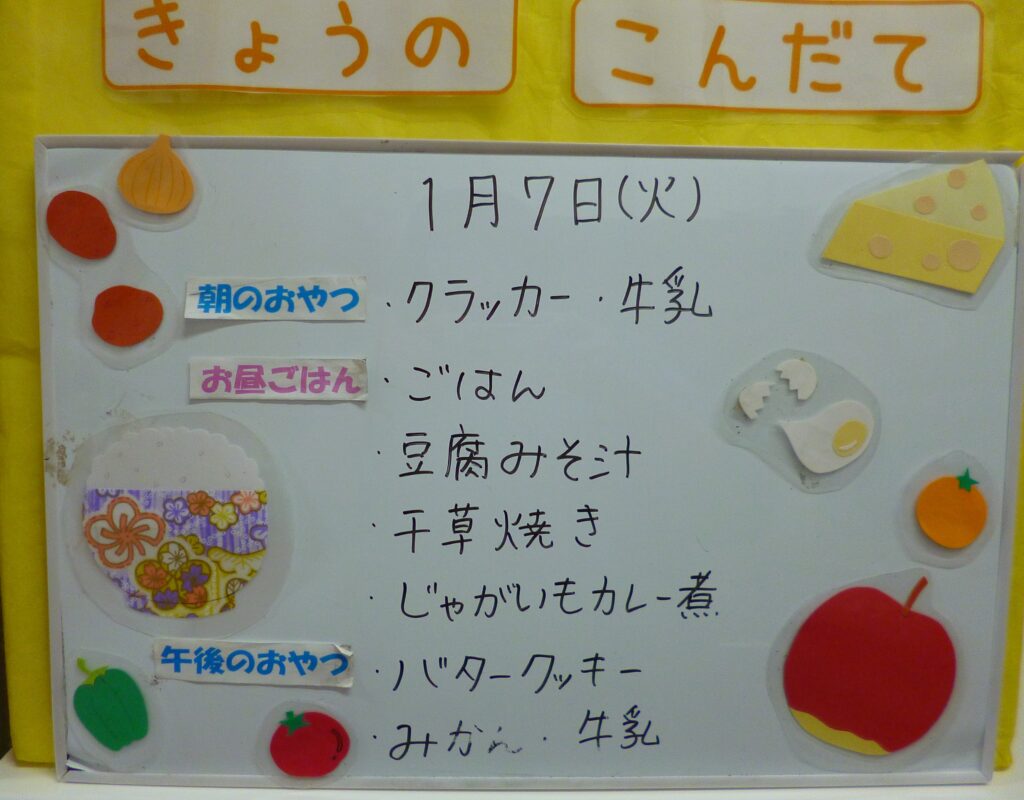 きょうの こんだて
1月7日(火)
朝のおやつ ・クラッカー ・牛乳
お昼ごはん ・ごはん
・豆腐みそ汁
・千草焼き
・じゃがいもカレー煮
午後のおやつ ・バタークッキー
・みかん・牛乳